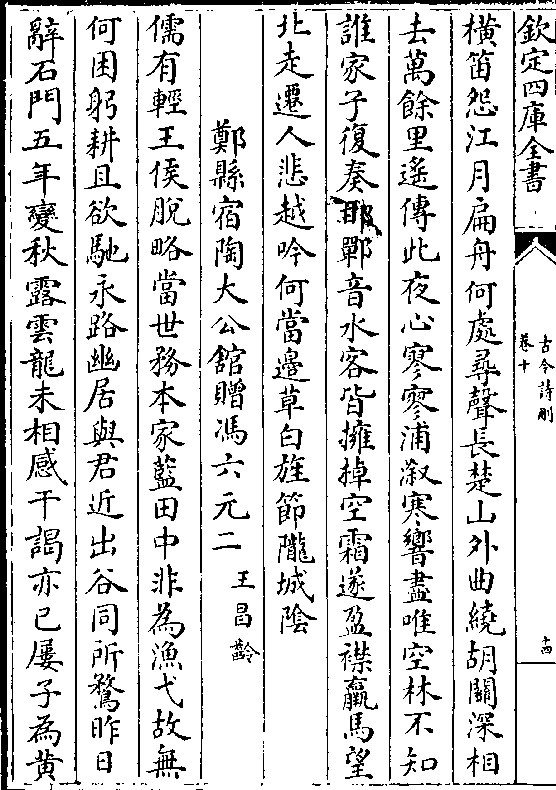 欽定四庫全書
古今詩刪
卷十
十四
橫笛怨江月扁舟何處尋聲長楚山外曲繞胡關深相
去萬餘里遙傳此夜心寥寥浦溆寒響盡唯空林不知
誰家子復奏邯鄲音水客皆擁棹空霜遂盈襟羸馬望
北走遷人悲越吟何當邉草白旌節隴城陰
鄭縣宿陶大公館贈馮六元二
王昌齡
儒有輕王侯脫略當世務本家藍田中非為漁弋故無
何困躬耕且欲馳永路幽居與君近出谷同所騖昨日
辭石門五年變秋露雲龍未相感干謁亦已屢子為黄